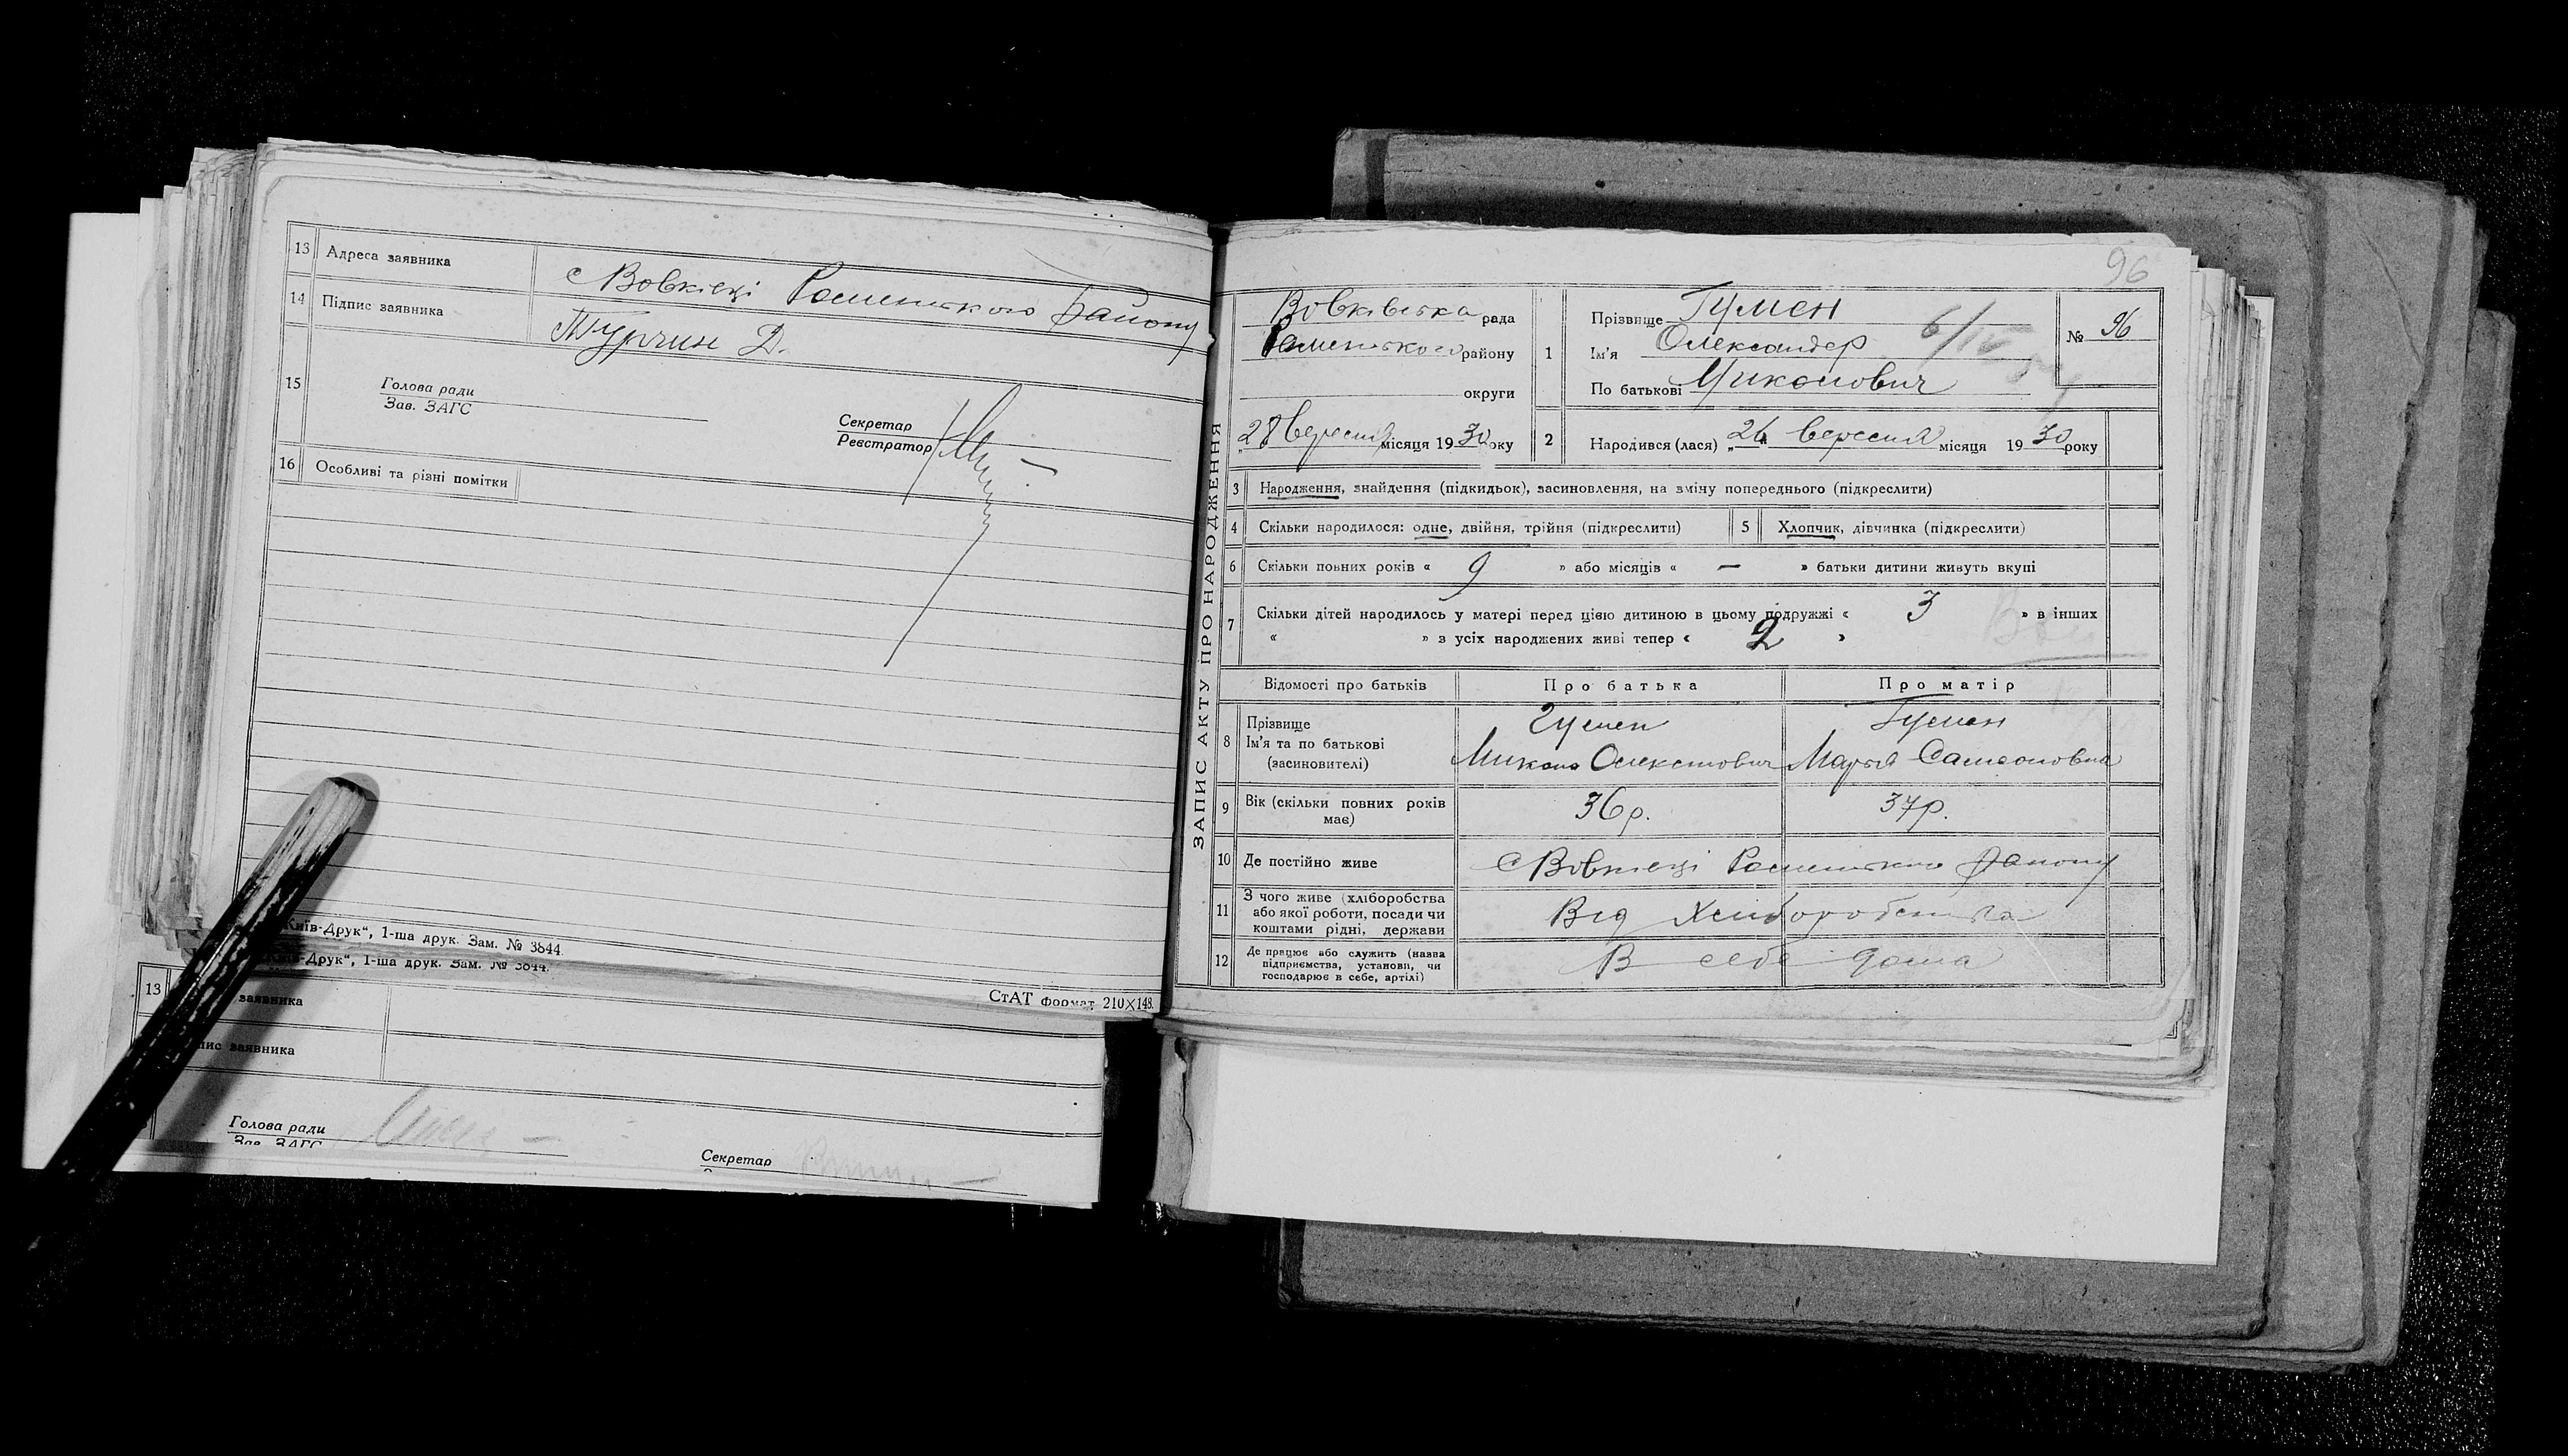 13 Адреса заявника
с Вовківці Роменського району
14 Підпис заявника
Турчин Д.
15
Голова ради
Зав. ЗАГС
Секретар
Реєстратор
16 Особливі та різні помітки
"Київ-Друк", 1-ша друк. Зам. № 3844.
-Друк", 1-ша друк. Зам. № 3844.
СтАТ формат 210×148.
13 заявника
заявника
Голова ради
Зав. ЗАГС
Секретар
96
ЗАПИС АКТУ ПРО НАРОДЖЕННЯ
Вовківська рада
Роменського району
округи
„28 Вересня місяця 1930 року
1 Прізвище Гумен
Ім'я Олександер
По батькові Миколович
№ 96
2 Народився (лася) „24 вересня місяця 1930 року
3 Народження, знайдення (підкидьок), засиновлення, на зміну попереднього (підкреслити)
4 Скільки народилося: одне, двійня, трійня (підкреслити)
5 Хлопчик, дівчинка (підкреслити)
6 Скільки повних років « 9 » або місяців « — » батьки дитини живуть вкупі
7 Скільки дітей народилось у матері перед цією дитиною в цьому подружжі « 3 » в інших
« » з усіх народжених живі тепер « 2 »
Відомості про батьків Про батька Про матір
8 Прізвище Гумен Гумен
Ім'я та по батькові Микола Олексійович Марія Самсоновна
(засиновителі)
9 Вік (скільки повних років має) 36 р. 37 р.
10 Де постійно живе с Вовківці Роменського району
11 З чого живе (хліборобства
або якої роботи, посади чи
коштами рідні, держави
Від Хліборобства
12 Де працює або служить (назва
підприємства, установи, чи
господарює в себе, артілі)
В себе дома